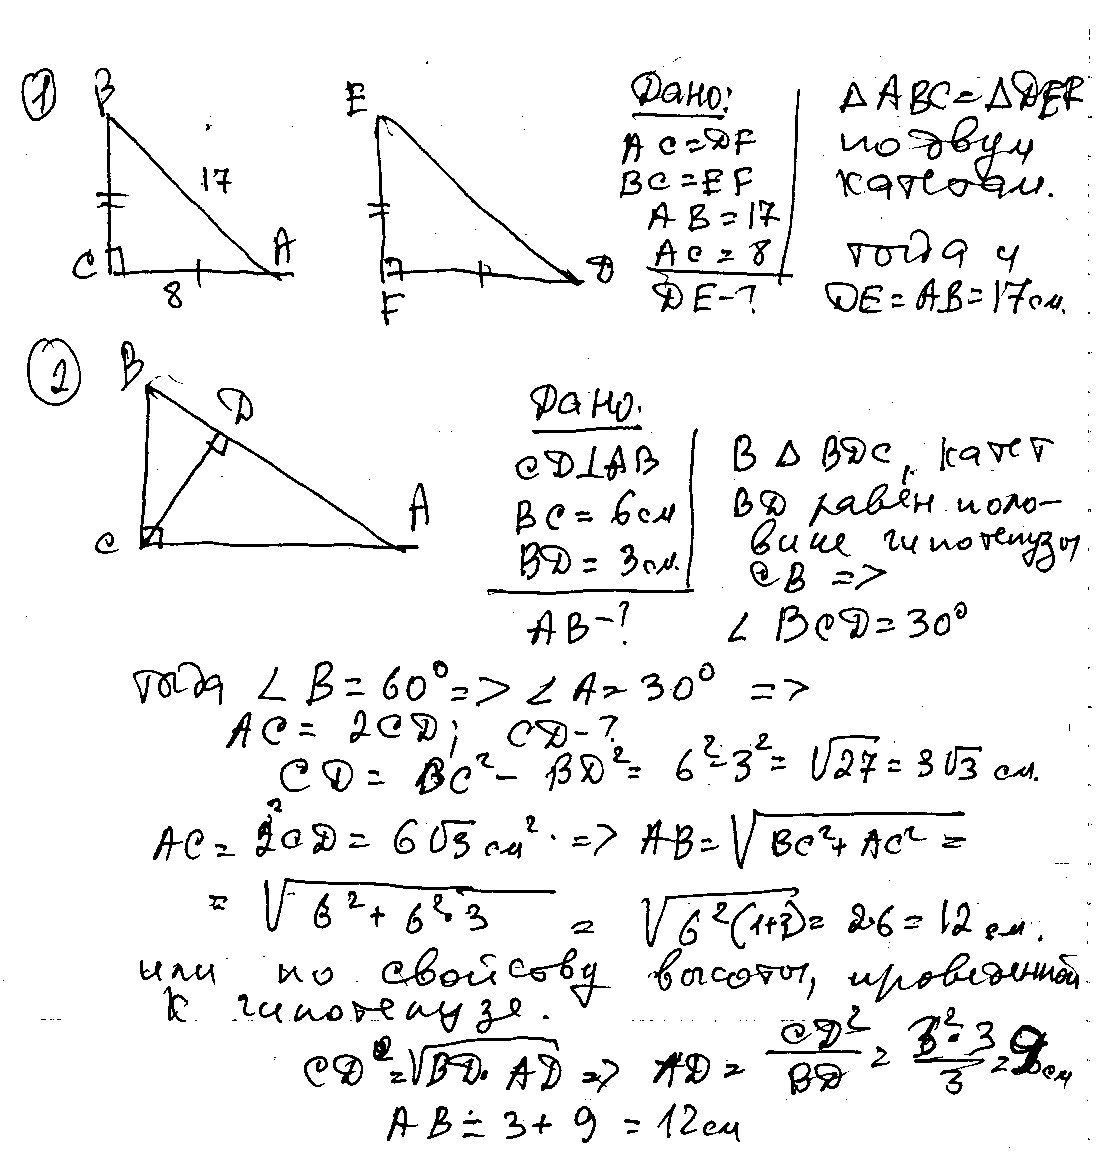 1
B
17
C
A
8
E
F
D
Дано:
AC = DF
BC = EF
AB = 17
AC = 8
DE - ?
Δ ABC = Δ DEF
по двум
катетам.
тогда и
DE = AB = 17 см.
2
B
D
A
C
Дано:
CD⊥AB
BC = 6 см
BD = 3 см.
AB - ?
В Δ BDC, катет
BD равен поло-
вине гипотенузы
CB =>
∠ BCD = 30°
тогда ∠ B = 60° => ∠ A = 30° =>
AC = 2CD; CD - ?
CD = BC² - BD² = 6² - 3² = √27 = 3√3 см.
AC = 2CD = 6√3 см². => AB = √BC² + AC² =
= √6² + 6²·3 = √6²(1+3) = 2·6 = 12 см.
или по свойсову высоты, проведенной
к гипотенузе.
CD² = √BD · AD => AD = CD²/BD = 3²·3/3 = 9 см
AB = 3 + 9 = 12 см